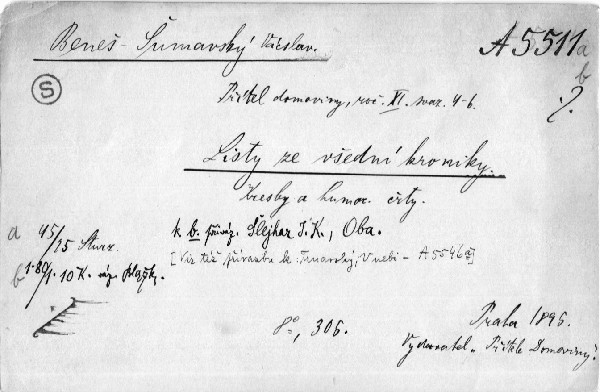 Beneš-Šumavský Václav.
A 5511 a
b
S
Přítel domoviny, roč. XI. svaz. 4-6.
Listy ze všední kroniky.
Kresby a humor. črty.
a 45/25 Sturz.
k b. přivaz. Šlejhar J. K., Oba.
[Viz též přívazba k: Tmavský, V nebi - A 5546 a]
b 1·80/1·10 K.
8°, 306.
Praha 1896.
Vydavatel „Přítele Domoviny“.